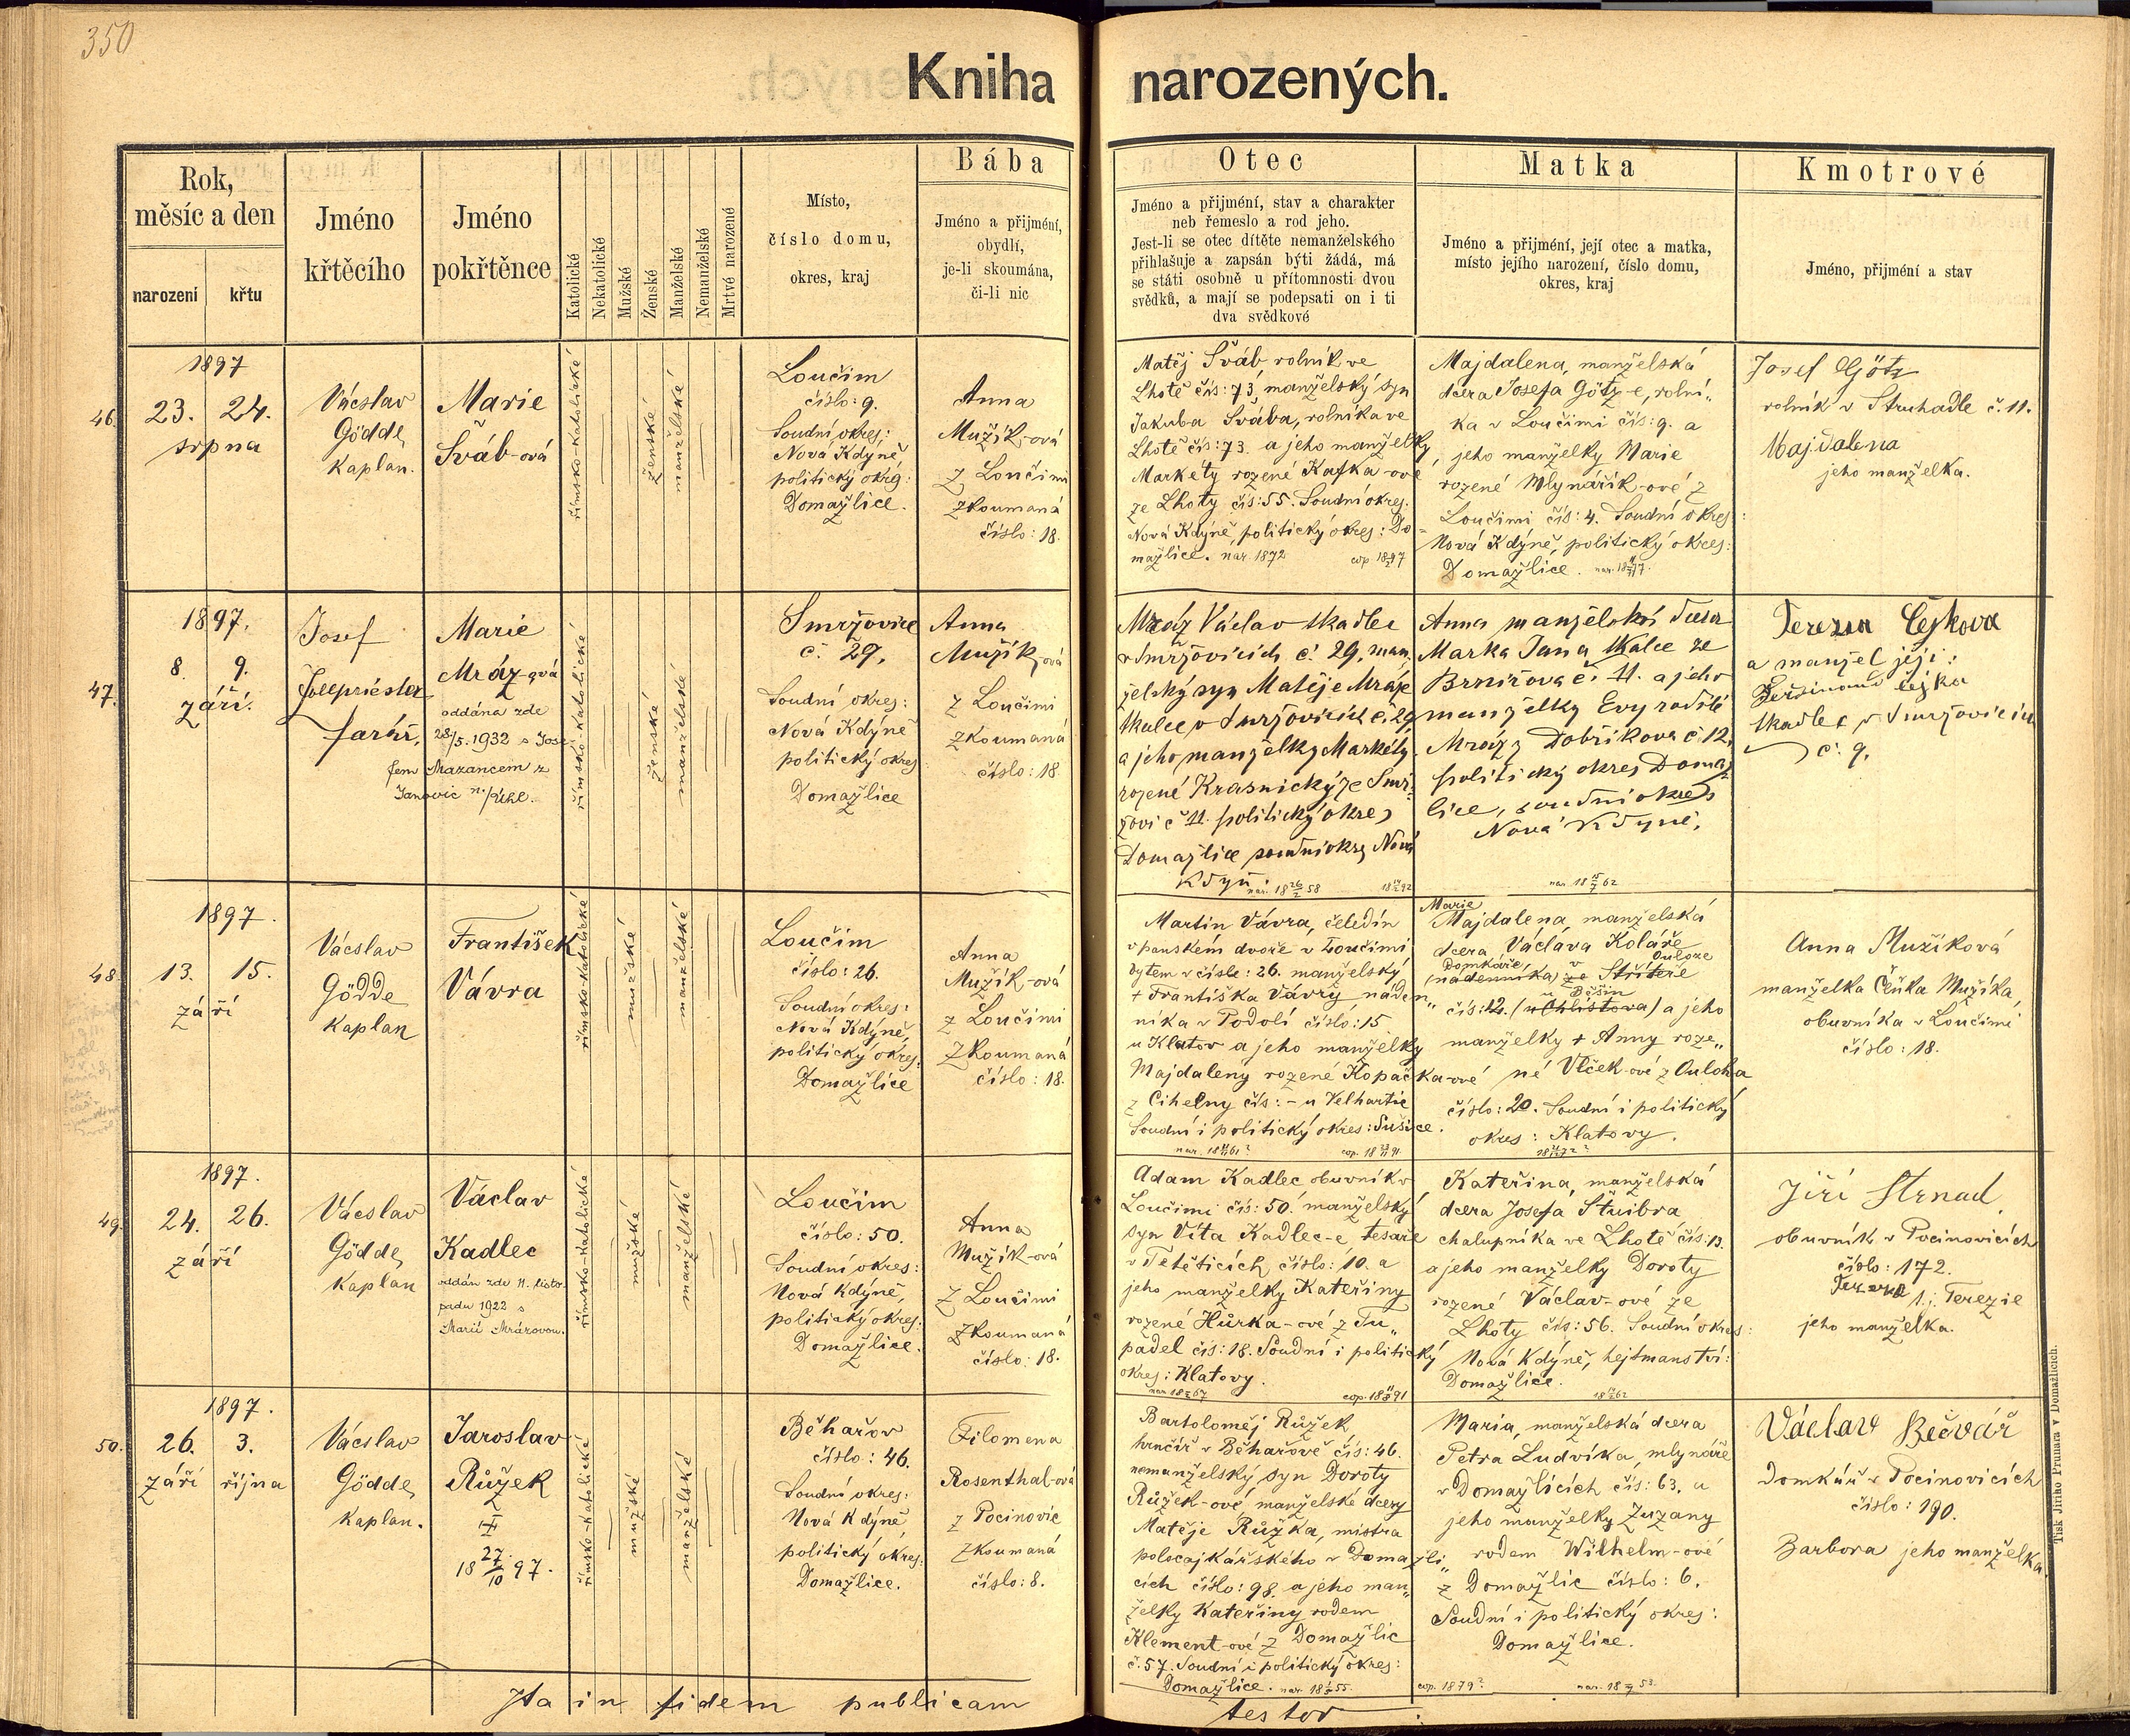 350
Kniha narozených.
Rok,
měsíc a den
narození
křtu
Jméno
křtěcího
Jméno
pokřtěnce
Katolické
Nekatolické
Mužské
Ženské
Manželské
Nemanželské
Mrtvě narozené
Místo,
číslo domu,
okres, kraj
Bába
Jméno a přijmění,
obydlí,
je-li skoumána,
či-li nic
Otec
Jméno a přijmění, stav a charakter
neb řemeslo a rod jeho.
Jest-li se otec dítěte nemanželského
přihlašuje a zapsán býti žádá, má
se státi osobně u přítomnosti dvou
svědků, a mají se podepsati on i ti
dva svědkové
Matka
Jméno a přijmění, její otec a matka,
místo jejího narození, číslo domu,
okres, kraj
Kmotrové
Jméno, přijmění a stav
46.
1897
23. 24.
srpna
Václav
Gödde,
Kaplan.
Marie
Šváb-ová
římsko-katolické
ženské
manželské
Loučim
číslo: 9.
Soudní okres:
Nová Kdyně
politický okres:
Domažlice.
Anna
Mužík-ová
z Loučimi
zkoumaná
číslo: 18.
Matěj Šváb, rolník ve
Lhotě čís: 73, manželský syn
Jakuba Švába, rolníka ve
Lhotě čís: 73. a jeho manželky,
Markéty rozené Kafka-ové
ze Lhoty čís: 55. Soudní okres:
Nová Kdyně, politický okres: Do-
mažlice. nar. 1872
Majdalena, manželská
dcera Josefa Götz-e, rolní„
ka v Loučimi čís: 9. a
jeho manželky Marie
rozené Mlynářík-ové z
Loučimi čís: 4. Soudní okres:
Nová Kdyně, politický okres:
Domažlice.
Josef Götz
rolník v Struhadle č. 11.
Majdalena
jeho manželka.
47.
1897.
8. 9.
září.
Josef
farář.
Marie
Mráz-ová
oddána zde
28/5. 1932 s Jose-
fem Mazancem z
Janovic n./Úhl.
římsko-katolické
ženské
manželské
Smržovice
č. 29.
Soudní okres:
Nová Kdyně
politický okres
Domažlice
Anna
Mužík-ová
z Loučimi
zkoumaná
číslo: 18
Mráz Václav tkadlec
v Smržovicích č. 29, man„
želský syn Matěje Mráze
tkalce v Smržovicích č. 29
a jeho manželky Markéty
rozené Krasnický ze Smr-
žovic č 11. politický okres
Domažlice soudní okres Nová
Kdyň. nar. 18 26/2 58
Anna manželská dcera
Marka Jana tkalce ze
Brnířova č. 11. a jeho
manželky Evy rodilé
Mráz z Dobříkova č 12,
politický okres Domaž
lice, soudní okres
Nová Kdyně.
Terezia Cejkova
a manžel její:
Ferdinand Cejka
tkadlec v Smržovicích
č. 9.
48.
1897.
13. 15.
září
Václav
Gödde
Kaplan
František
Vávra
římsko-katolické
mužské
manželské
Loučim
číslo: 26.
Soudní okres:
Nová Kdyně,
politický okres:
Domažlice
Anna
Mužík-ová
z Loučimi
zkoumaná
číslo: 18.
Martin Vávra, čeledín
v panském dvoře v Loučimi
bytem v čísle: 26. manželský
+ Františka Vávry náden„
níka v Podolí číslo: 15
u Klatov a jeho manželky
Majdaleny rozené Kopačka-ové
z Cihelny čís: - u Velhartic
Soudní i politický okres: Sušice.
Marie
Majdalena, manželská
dcera Václava Koláře
Domkáře, v Ouloze
(nádenníka) ze Stříteře
u Běšin
čís: 12. (u Chlistova) a jeho
manželky + Anny roze„
né Vlček-ové z Ouloha
číslo: 20. Soudní i politický
okres: Klatovy.
Anna Mužíková
manželka Čeňka Mužíka,
obuvníka v Loučimi
číslo: 18.
49.
1897.
24. 26.
září
Václav
Gödde,
Kaplan
Václav
Kadlec
oddán zde 11. listo-
padu 1922 s
Marií Mrázovou.
římsko-katolické
mužské
manželské
Loučim
číslo: 50.
Soudní okres:
Nová Kdyně,
politický okres:
Domažlice.
Anna
Mužík-ová
z Loučimi
zkoumaná
číslo: 18.
Adam Kadlec obuvník v
Loučimi čís: 50. manželský
syn Víta Kadlec-e tesaře
v Tetěticích, číslo: 10. a
jeho manželky Kateřiny
rozené Hůrka-ové z Tu„
padel čís: 18. Soudní i politický
okres: Klatovy.
Kateřina, manželská
dcera Josefa Štuibra
chalupníka ve Lhotě čís: 13.
a jeho manželky Doroty
rozené Václav-ové ze
Lhoty čís: 56. Soudní okres:
Nová Kdyně, hejtmanství:
Domažlice.
Jiří Strnad,
obuvník v Pocinovicích
číslo: 172.
t.j. Terezie
jeho manželka.
50.
1897.
26. 3.
září října
Václav
Gödde,
Kaplan.
Jaroslav
Růžek
18 27/10 97.
římsko-katolické
mužské
manželské
Běhařov
číslo: 46.
Soudní okres:
Nová Kdyně,
politický okres:
Domažlice.
Filomena
Rosenthal-ová
z Pocinovic
zkoumaná
číslo: 8.
Bartoloměj Růžek,
hrnčíř v Běhařově čís: 46.
nemanželský syn Doroty
Růžek-ové, manželské dcery
Matěje Růžka, mistra
v Domažli„
cích číslo: 98. a jeho man„
želky Kateřiny rodem
Klement-ové z Domažlic
č. 57. Soudní i politický okres:
Domažlice.
Maria, manželská dcera
Petra Ludvíka, mlynáře
v Domažlicích čís: 63. a
jeho manželky Zuzany
rodem Wilhelm-ové
z Domažlic číslo: 6.
Soudní i politický okres:
Domažlice.
cop. 1879
Václav Bečvář
Domkář v Pocinovicích
číslo: 190.
Barbora jeho manželka.
Ita in fidem publicam testor
Tisk Jiřího Prunara v Domažlicích.